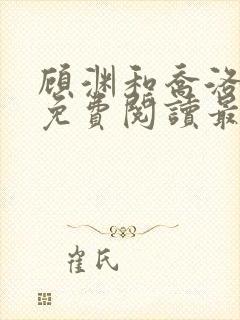 顾渊和乔洛
免費閱讀最
崔氏